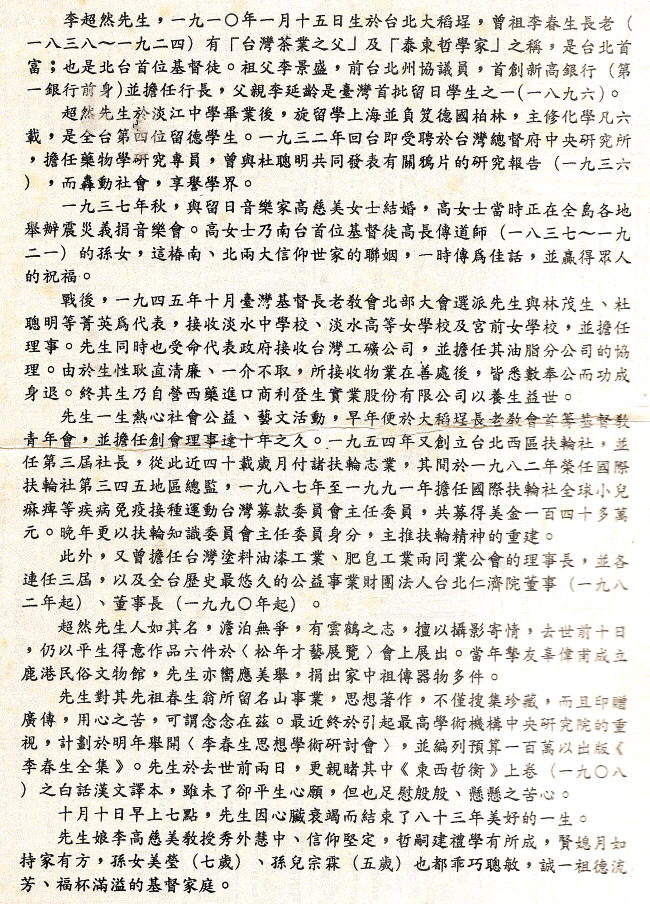 李超然先生，一九一〇年一月十五日生於台北大稻埕，曾祖李春生長老（
一八三八～一九二四）有「台灣茶業之父」及「泰東哲學家」之稱，是台北首
富；也是北台首位基督徒。祖父李景盛，前台北州協議員，首創新高銀行（第
一銀行前身)並擔任行長，父親李延齡是臺灣首批留日學生之一(一八九六)。
超然先生於淡江中學畢業後，旋留學上海並負笈德國柏林，主修化學凡六
載，是全台第四位留德學生。一九三二年回台即受聘於台灣總督府中央研究所
，擔任藥物學研究專員，曾與杜聰明共同發表有關鴉片的研究報告（一九三六
），而轟動社會，享譽學界。
一九三七年秋，與留日音樂家高慈美女士結婚，高女士當時正在全島各地
舉辦震災義捐音樂會。高女士乃南台首位基督徒高長傳道師（一八三七～一九
二一）的孫女，這樁南、北兩大信仰世家的聯姻，一時傳爲佳話，並贏得眾人
的祝福。
戰後，一九四五年十月臺灣基督長老教會北部大會選派先生與林茂生、杜
聰明等菁英爲代表，接收淡水中學校、淡水高等女學校及宮前女學校，並擔任
理事。先生同時也受命代表政府接收台灣工礦公司，並擔任其油脂分公司的協
理。由於生性耿直清廉、一介不取，所接收物業在善處後，皆悉數奉公而功成
身退。終其生乃自營西藥進口商利登生實業股份有限公司以養生益世。
先生一生熱心社會公益、藝文活動，早年便於大稻埕長老教會首籌基督教
青年會，並擔任創會理事達十年之久。一九五四年又創立台北西區扶輪社，並
任第三屆社長，從此近四十載歲月付諸扶輪志業，其間於一九八二年榮任國際
扶輪社第三四五地區總監，一九八七年至一九九一年擔任國際扶輪社全球小兒
痲痺等疾病免疫接種運動台灣募款委員會主任委員，共募得美金一百四十多萬
元。晚年更以扶輪知識委員會主任委員身分，主推扶輪精神的重建。
此外，又曾擔任台灣塗料油漆工業、肥皂工業兩同業公會的理事長，並各
連任三屆，以及全台歷史最悠久的公益事業財團法人台北仁濟院董事（一九八
二年起）、董事長（一九九〇年起）。
超然先生人如其名，澹泊無爭，有雲鶴之志，擅以攝影寄情，去世前十日
，仍以平生得意作品六件於〈松年才藝展覽〉會上展出。當年摯友辜偉甫成立
鹿港民俗文物館，先生亦嚮應美舉，捐出家中祖傳器物多件。
先生對其先祖春生翁所留名山事業，思想著作，不僅搜集珍藏，而且印贈
廣傳，用心之苦，可謂念念在茲。最近終於引起最高學術機構中央研究院的重
視，計劃於明年舉開〈李春生思想學術研討會〉，並編列預算一百萬以出版《
李春生全集》。先生於去世前兩日，更親睹其中《東西哲衡》上卷（一九〇八
）之白話漢文譯本，雖未了卻平生心願，但也足慰殷殷、懸懸之苦心。
十月十日早上七點，先生因心臟衰竭而結束了八十三年美好的一生。
先生娘李高慈美教授秀外慧中、信仰堅定，哲嗣建禮學有所成，賢媳月如
持家有方，孫女美瑩（七歲）、孫兒宗霖（五歲）也都乖巧聰敏，誠一祖德流
芳、福杯滿溢的基督家庭。